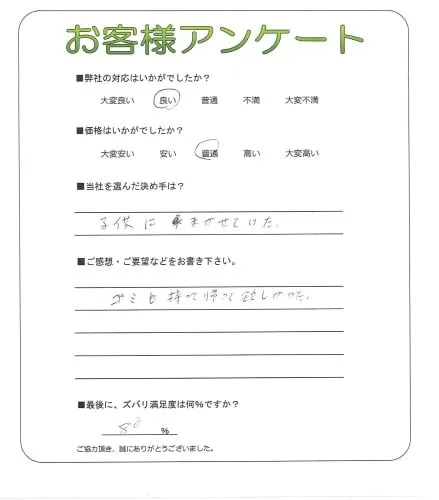 お客様アンケート
■弊社の対応はいかがでしたか?
大変良い 良い 普通 不満 大変不満
■価格はいかがでしたか?
大変安い 安い 普通 高い 大変高い
■当社を選んだ決め手は?
子供にまかせていた.
■ご感想・ご要望などをお書き下さい。
ゴミも持って帰って欲しかった。
■最後に、ズバリ満足度は何%ですか?
80 %
ご協力頂き、誠にありがとうございました。